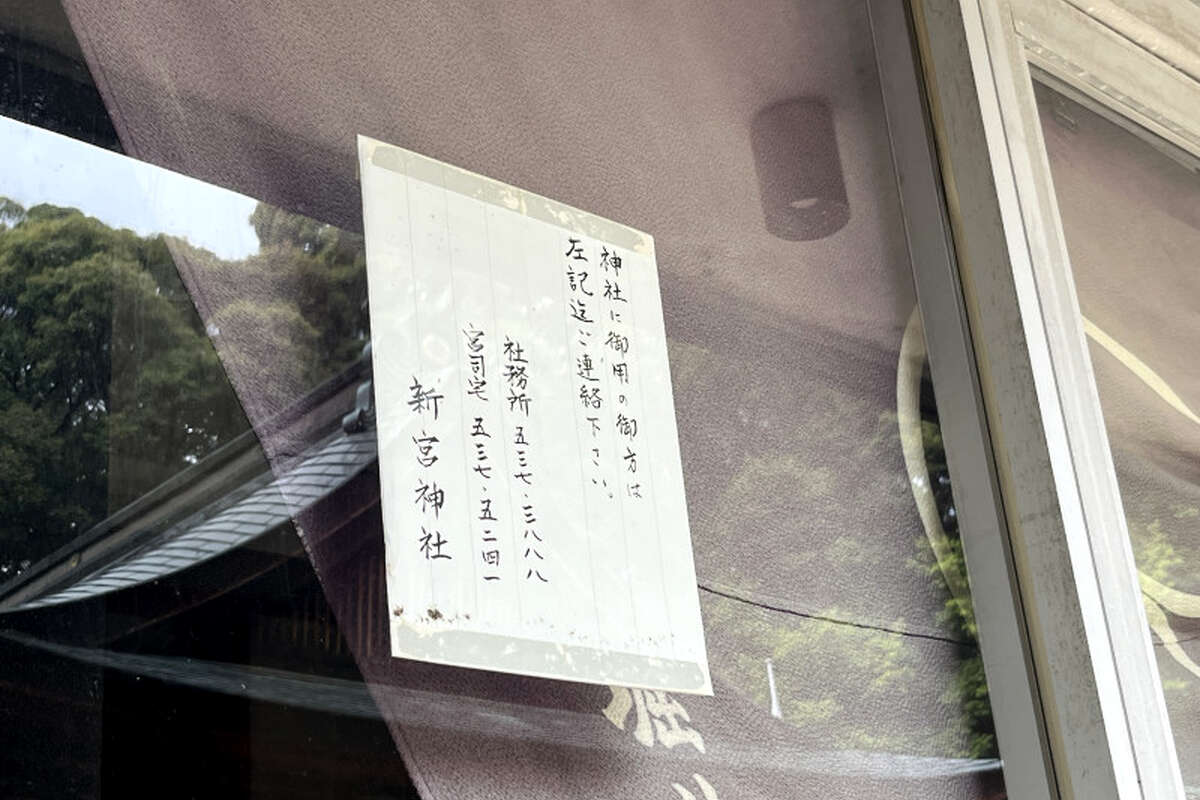 神社に御用の御方は
左記迄ご連絡下さい。
社務所 五三七・三八八八
宮司宅 五三七・五二四一
新宮神社